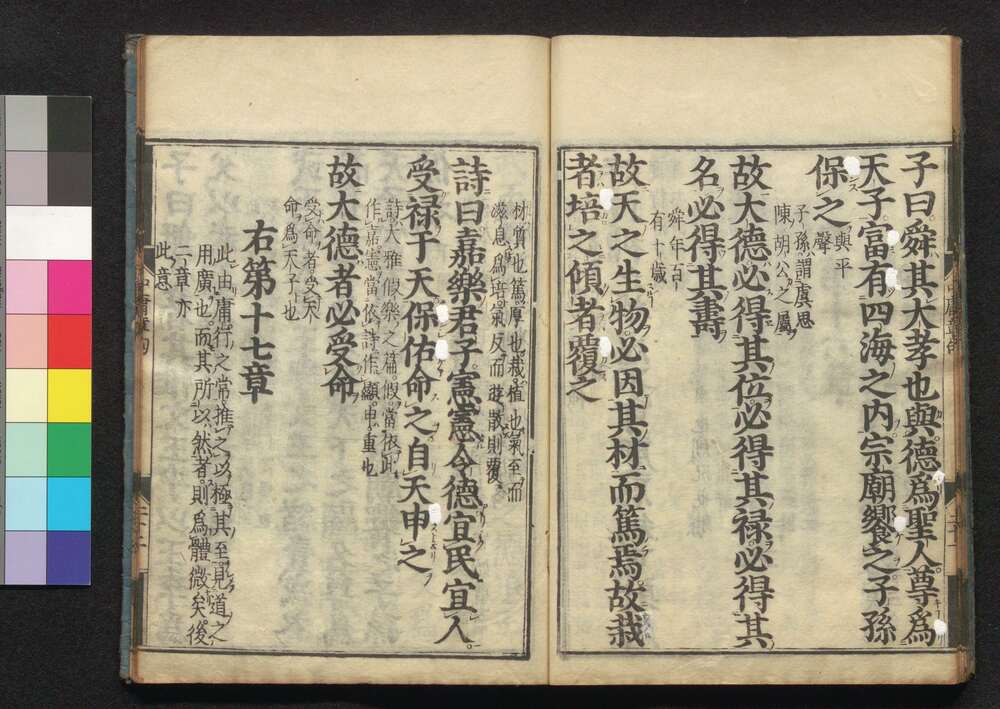 子曰舜其大孝也與德爲聖人尊爲
天子富有四海之内宗廟饗之子孫
保之
與平
聲
子孫謂虞思
陳胡公之屬
故大德必得其位必得其禄必得其
名必得其壽
舜年百
有十歳
故天之生物必因其材而篤焉故栽
者培之傾者覆之
材質也篤厚也栽植也氣至而
滋息爲培氣反而游散則覆
詩曰嘉樂君子憲憲令德宜民宜人
受禄于天保佑命之自天申之
詩大雅假樂之篇假當依此
作嘉憲當依詩作顯申重也
故大德者必受命
受命者受天
命爲天子也
右第十七章
此由庸行之常推之以極其至見道之
用廣也而其所以然者則爲體微矣後
二章亦
此意